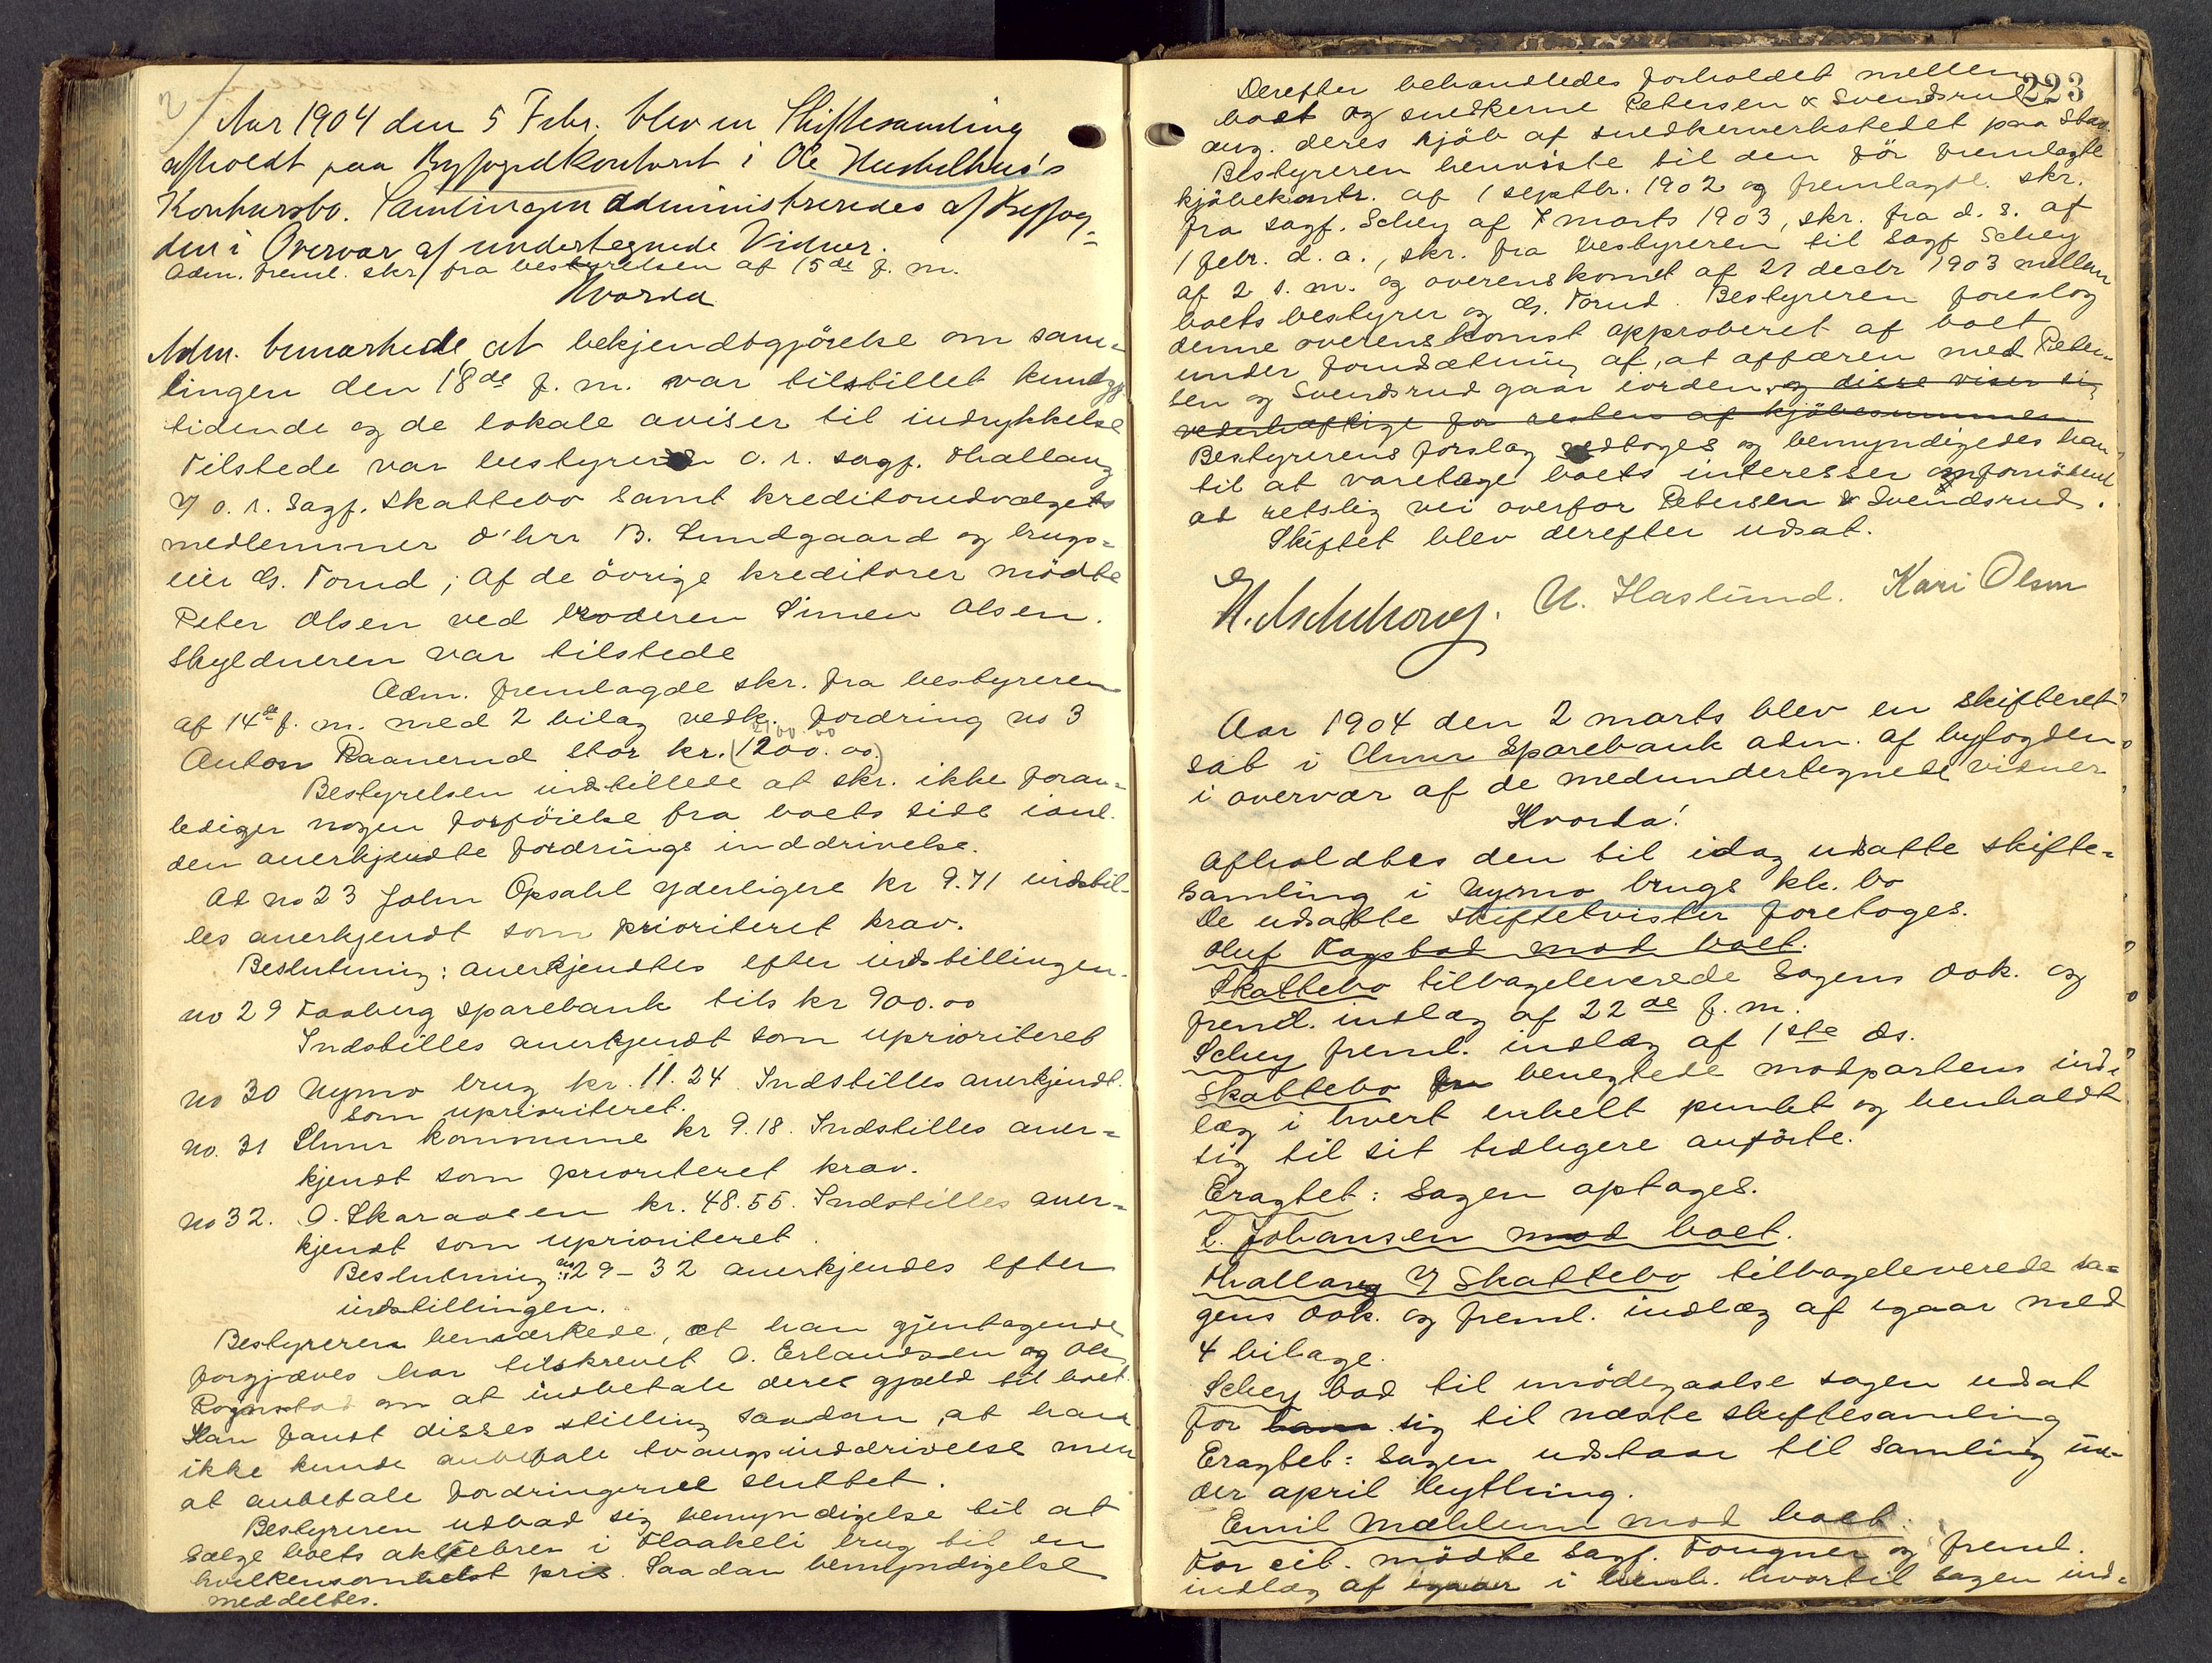 Aar 1904 den 5 Febr. blev en Skiftesamling
afholdt paa Byfogedkontoret i Ole Huskelhus's
Konkursbo. Samlingen administreredes af Byfog-
den i Overvær af undertegnede Vidner.
Adm. freml. skr. fra bestyrelsen af 15de f. m.
Hvorda
Adm. bemærkede, at bekjendtgjörelse om sam-
lingen den 18de f. m. var tilstillet kundgj.
tidende og de lokale aviser til indrykkelse
Tilstede var bestyreren o. r. sagf. Thallaug
V o. r. Sagf. Skattebo samt kreditorudvalgets
medlemmer d'hrr B. Lundgaard og brugs-
eier G. Forud; Af de övrige kreditorer mödte
Peter Olsen ved broderen Simen Olsen.
Skyldneren var tilstede
Adm. fremlagde skr. fra bestyreren
af 14de f. m. med 2 bilag vedk. fordring no 3
Anton Raanerud stor kr. (1200.00)
Bestyrelsen indstillede at skr. ikke foran-
lediger nogen forföielse fra boets side ianl.
den anerkjendte fordrings inddrivelse.
Ad no 23 John Opsahl yderligere kr 9.71 indstil-
les anerkjendt som prioriteret krav.
Beslutning: anerkjendtes efter indstillingen.
no 29 Faaberg sparebank tils kr 900.00
Indstilles anerkjendt som uprioriteret
no 30 Nymo brug kr. 11.24. Indstilles anerkjendt
som uprioriteret.
no. 31 Elmer kommune kr 9.18. Indstilles aner-
kjendt som prioriteret krav.
no 32. O. Skaraasen kr. 48.55. Indstilles aner-
kjendt som uprioriteret.
Beslutning: no 29-32 anerkjendes efter
indstillingen.
Bestyreren bemærkede, at han gjentagende
forgjæves har tilskrevet O. Erlandsen og Ole
Rognstad om at indbetale deres gjæld til boet.
Han fandt disses stilling saadan, at han
ikke kunde anbefale tvangsinddrivelse men
at anbefale fordringerne sluttet.
Bestyreren udbad sig bemyndigelse til at
sælge boets aktiebrev i Flaakeli brug til en
hvilkensomhelst pris. Saadan bemyndigelse
meddeltes.
223
Derefter behandledes forholdet mellem
boet og snedkerne Petersen & Svendsrud
ang. deres kjöb af snedkerverkstedet paa
Bestyreren henviste til den för fremlagte
kjöbekontr. af 1 septbr. 1902 og fremlagde skr.
fra sagf. Schey af 7 marts 1903, skr. fra d. s. af
1 febr. d. a., skr. fra bestyreren til sagf Schey
af 2 s. m. og overenskomst af 21 decbr 1903 mellem
boets bestyrer og G. Forud. Bestyreren foreslog
denne overenskomst approberet af boet
under forudsætning af, at affæren med Peter-
sen og Svendsrud gaar iorden, og disse viser sig
vederhæftige for resten af kjöbesummen
Bestyrerens forslag vedtoges og bemyndigedes han
til at varetage boets interesser om fornödent
ad retslig vei overfor Petersen & Svendsrud.
Skiftet blev derefter udsat.
H. Aschehoug. N. Haslund. Kari Olsen
Aar 1904 den 2 marts blev en skifteret
sat i Elmer Sparebank adm. af byfogden
i overvær af de medundertegnede vidner
Hvorda!
Afholdtes den til idag udsatte skifte-
samling i Nymo brugs kk. bo
De udsatte skiftetvister foretoges.
Oluf Fagstad mod boet.
Skattebo tilbageleverede Sagens dok. og
freml. indlæg af 22de f. m.
Schey freml. indlæg af 1ste ds.
Skattebo benegtede modpartens ind-
læg i hvert enkelt punkt og henholdt
sig til sit tidligere anförte.
Eragtet: Sagen optages.
L. Johansen mod boet.
Thallaug V Skattebo tilbageleverede sa-
gens dok. og freml. indlæg af igaar med
4 bilage.
Schey bad til imödegaaelse sagen udsat
for sig til næste skiftesamling
Eragtet: Sagen udstaar til samling un-
der april
Emil Mæhlum mod boet.
For cit. mödte sagf. Fougner og freml.
indlæg af igaar i henh. hvortil sagen ind-